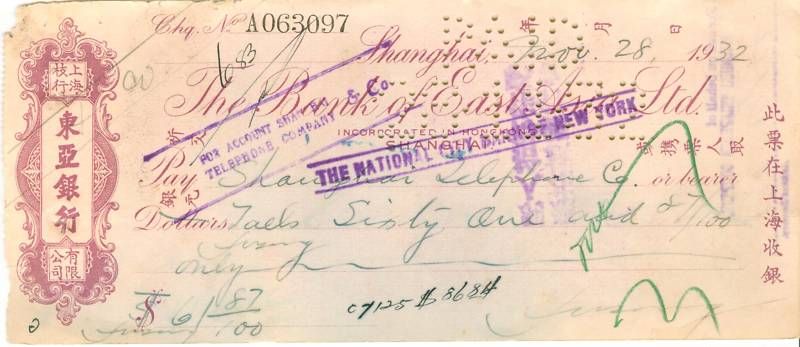 Chq. No A063097
年 月 日
Shanghai, Nov. 28, 1932
683
The Bank of East Asia Ltd.
INCORPORATED IN HONGKONG
SHANGHAI
& Co.
FOR ACCOUNT SHANGHAI
TELEPHONE COMPANY
THE NATIONAL CITY BANK OF NEW YORK
祈元
或携票人取
Pay Shanghai Telephone Co. or bearer
銀元
Dollars Taels Sixty One and 87/100
only
$ 61 87/100
C7125 $ 86.84
上海
枝行
東亞銀行
有限
公司
此票在上海收銀